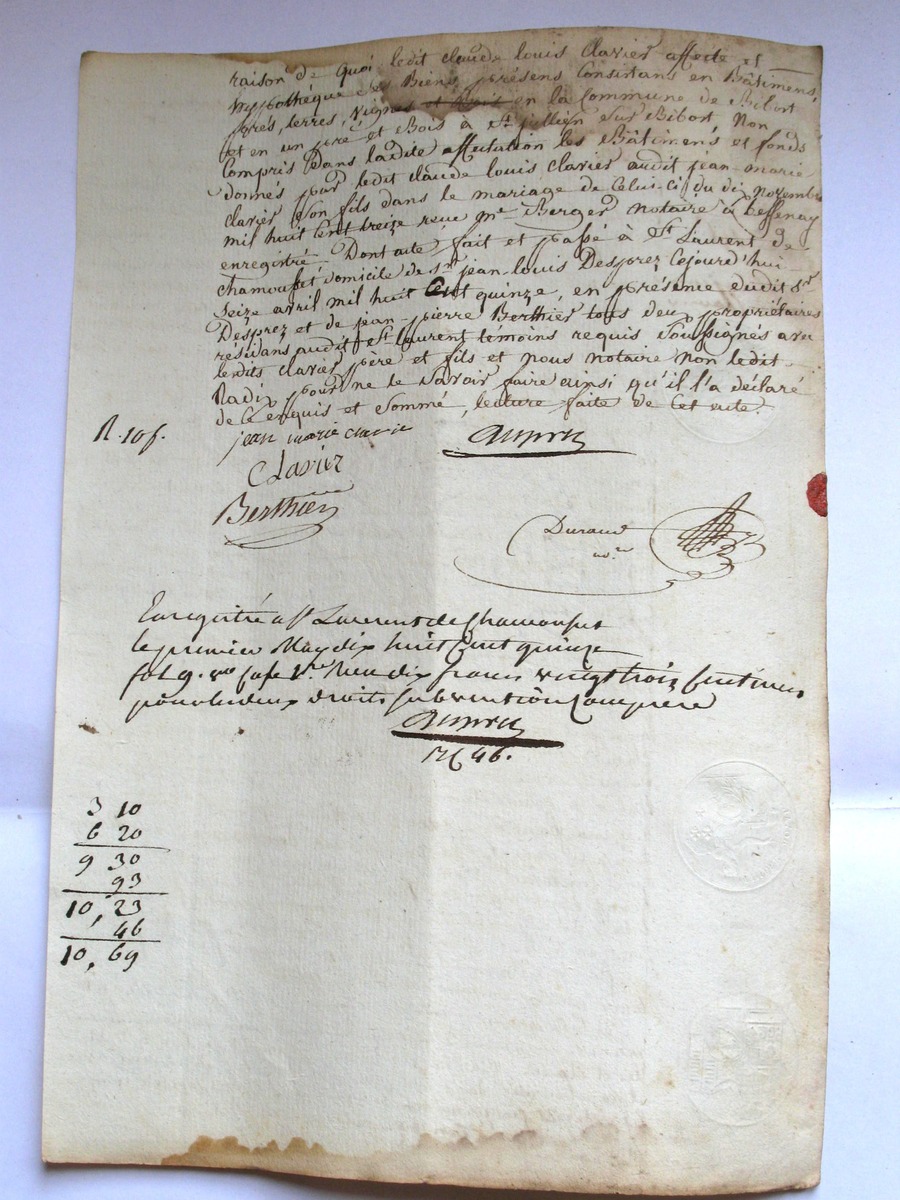 raison de quoi ledit claude louis clavier affecte et
hypothèque ses Biens présens Consistans en Bâtimens,
prés, terres, vignes et Bois en la Commune de Bibort
et en un pré et Bois à St. julien sur Bibort, Non
Compris dans ladite affectation les Bâtimens et fonds
donnés par ledit claude louis clavier audit jean-marie
clavier son fils dans le mariage de Celui-ci du dix novembre
mil huit Cent treize reçu me. Berger notaire à bessenay
enregistré. Dont acte, fait et passé à St. Laurent de
chamousset domicile de sr. jean-louis Desprez Cejourd'hui
seize avril mil huit Cent quinze, en présence dudit sr.
Desprez et de jean-pierre Berthier tous deux propriétaires
residans audit St laurent témoins requis soussignés avec
lesdits clavier père et fils et nous notaire non ledit
Radix pour ne le savoir faire ainsi qu'il l'a déclaré
de ce enquis et sommé, lecture faite de Cet acte.
R. 10 f.
jean marie clavie
Clavier
Berthier
Durand
no.re
Enregistré a St Laurent de Chamousset
le premier May dix huit Cent quinze
fol. 9. vo Case 1re Reçu dix francs vingt trois Centimes
pour les deux droits subvention Comprise
46.
3 10
6 20
9 30
93
10, 23
46
10, 69